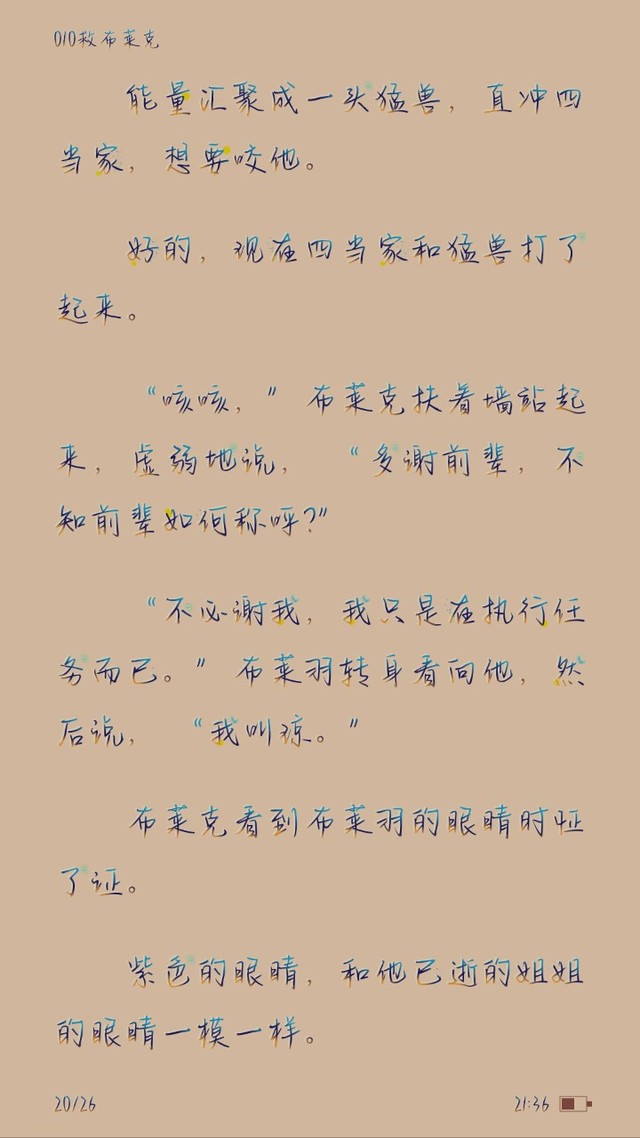 010救布莱克
能量汇聚成一头猛兽，直冲四
当家，想要咬他。
好的，现在四当家和猛兽打了
起来。
“咳咳，”布莱克扶着墙站起
来，虚弱地说，“多谢前辈，不
知前辈如何称呼？”
“不必谢我，我只是在执行任
务而已。”布莱羽转身看向他，然
后说，“我叫琼。”
布莱克看到布莱羽的眼睛时怔
了证。
紫色的眼睛，和他已逝的姐姐
的眼睛一模一样。
20/26
21:36